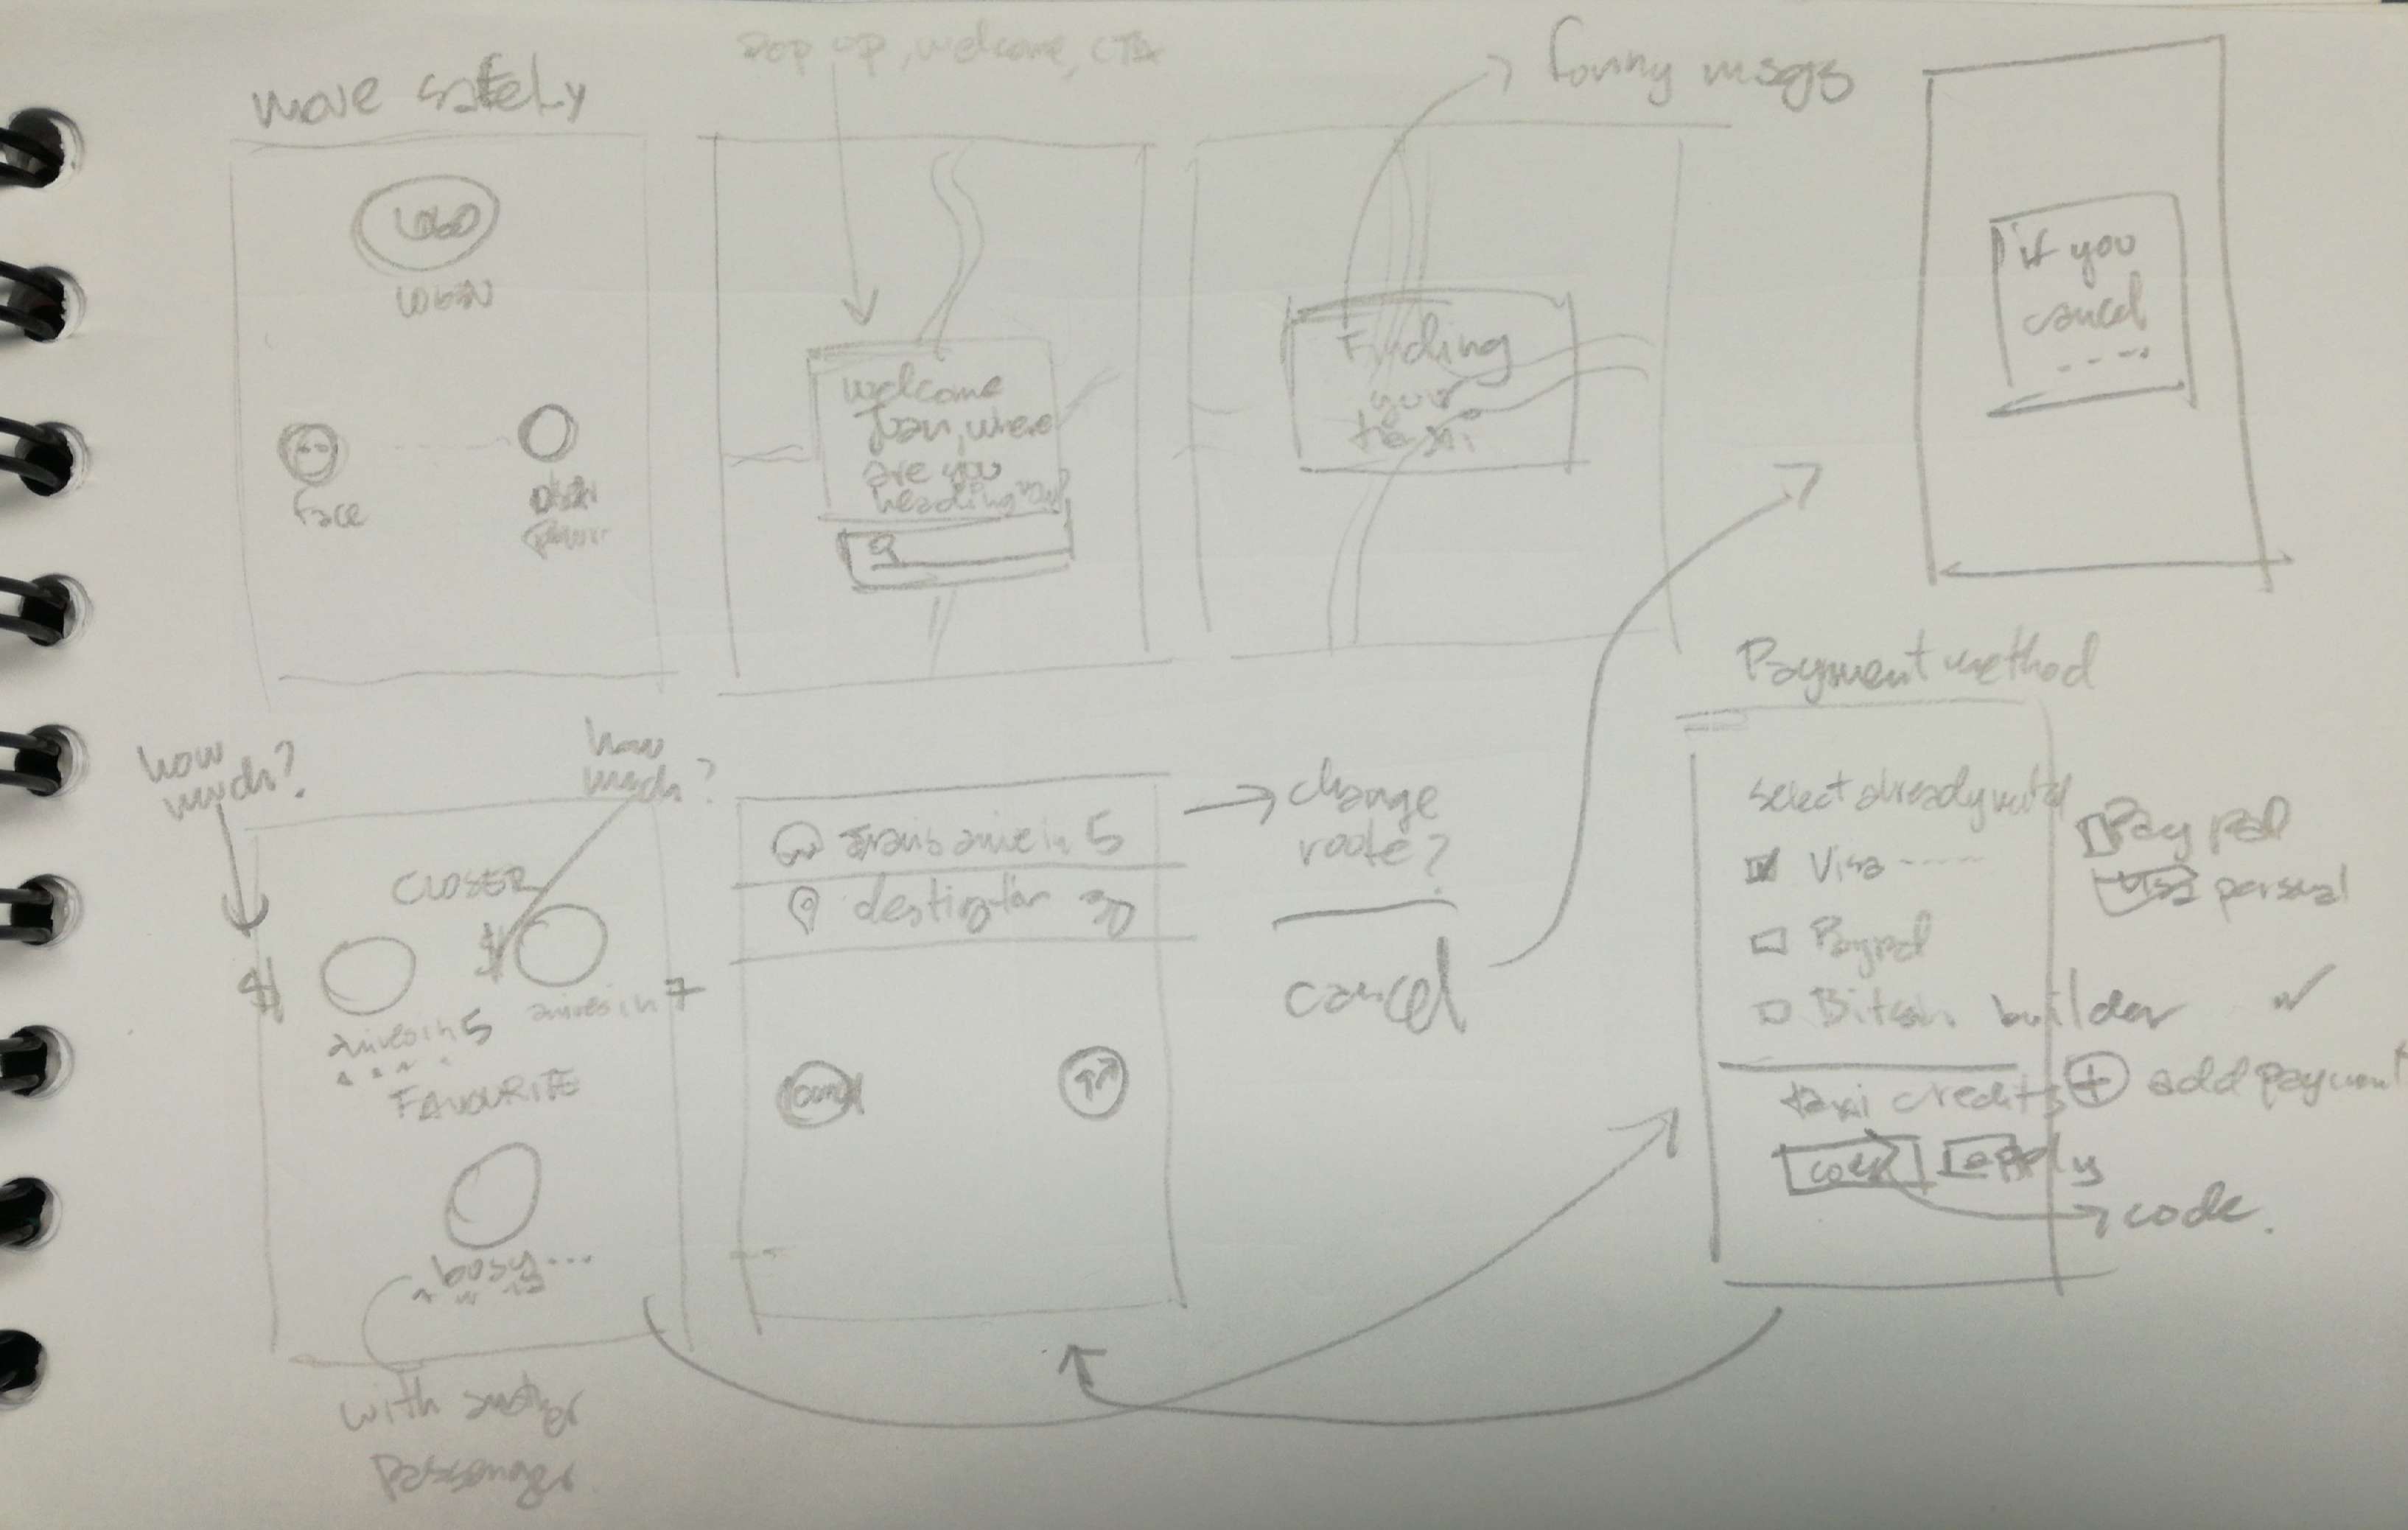 move safely
LOGO
LOGIN
face
pop up, welcome, CTA
welcome
Joan, where
are you
heading
funny msgs
Finding
your
taxi
if you
cancel
....
how
much?
how
much?
CLOSER
$
$
arrives in 5
arrives in 7
FAVOURITE
busy...
with another
passenger
arrive in 5
destination 30
change
route?
cancel
Payment method
select already
Visa -----
Paypal
builder ✓
taxi credits
apply
code.
Pay pal
visa personal
+ add payment